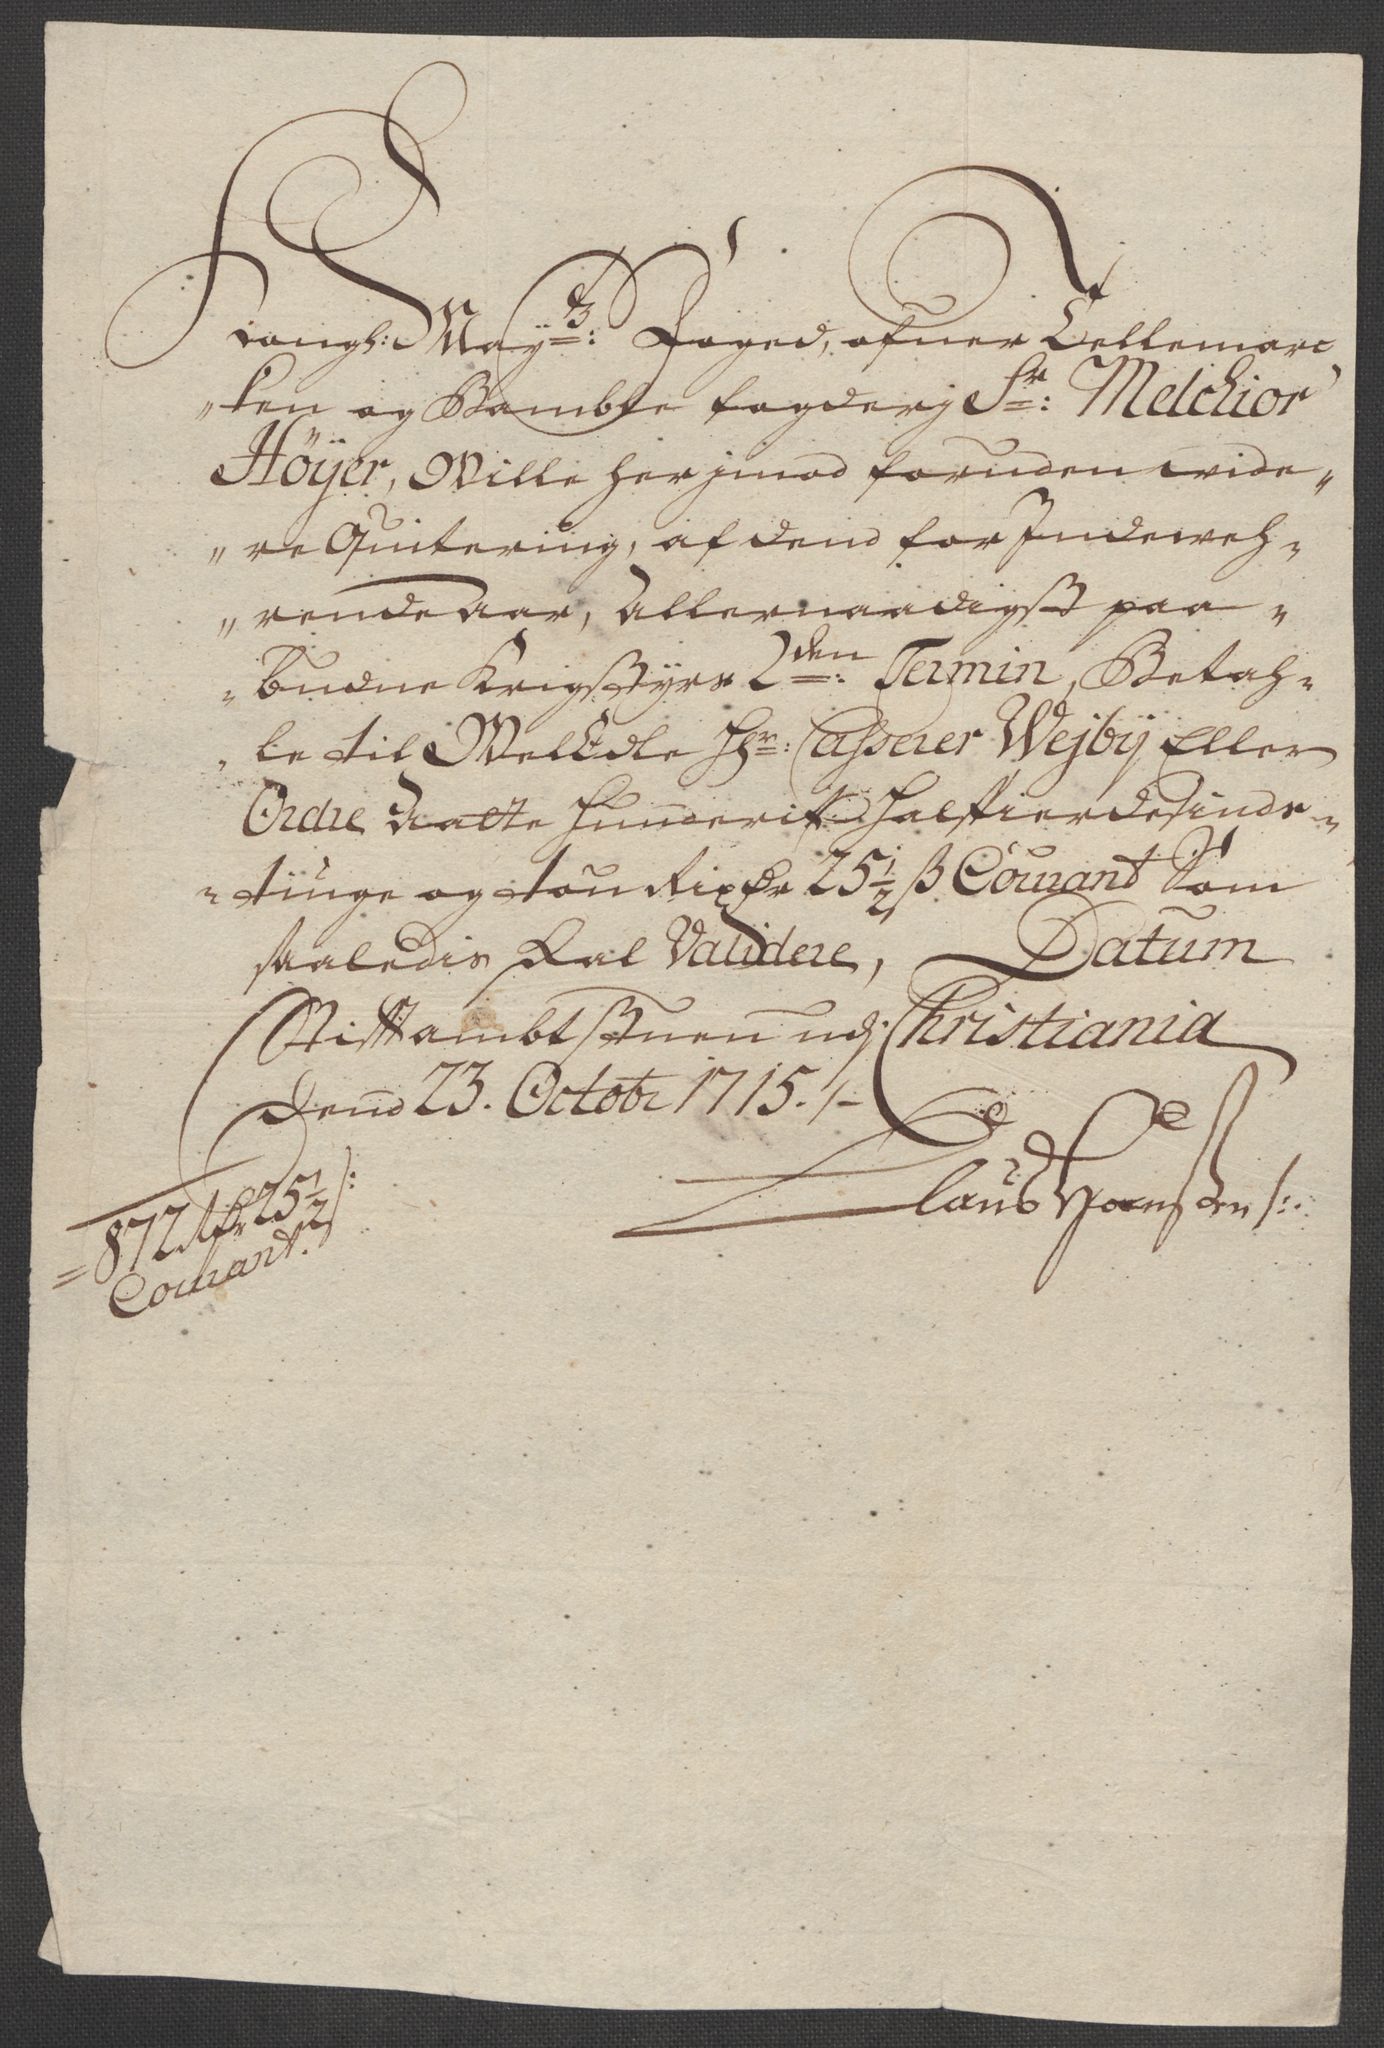 Kongl: May:ts: Foged, ofuer Tellemarc
"ken og Bamble fogderj Sr: Melchior
Höÿer, Wille herjmod foruden wide"
"re Quitering, af dend for Indeweh-
"rende Aar, Allernaadigst paa-
-budne Krigsstÿrs 2den: Termin, Betah-
-le til WelEdle Hr: Casserer Wejbÿ Eller
Ordre Aatte Hunderit Halffierdesinds-
-tiuge og tou Rixdr 25½ ß Courant Som
saaledis skal Validere, Datum
Stiftambtstuen udj Christiania
Dend 23. Octobr 1715./-
Claus
=872 Rdr 25½ ß:
Courant.